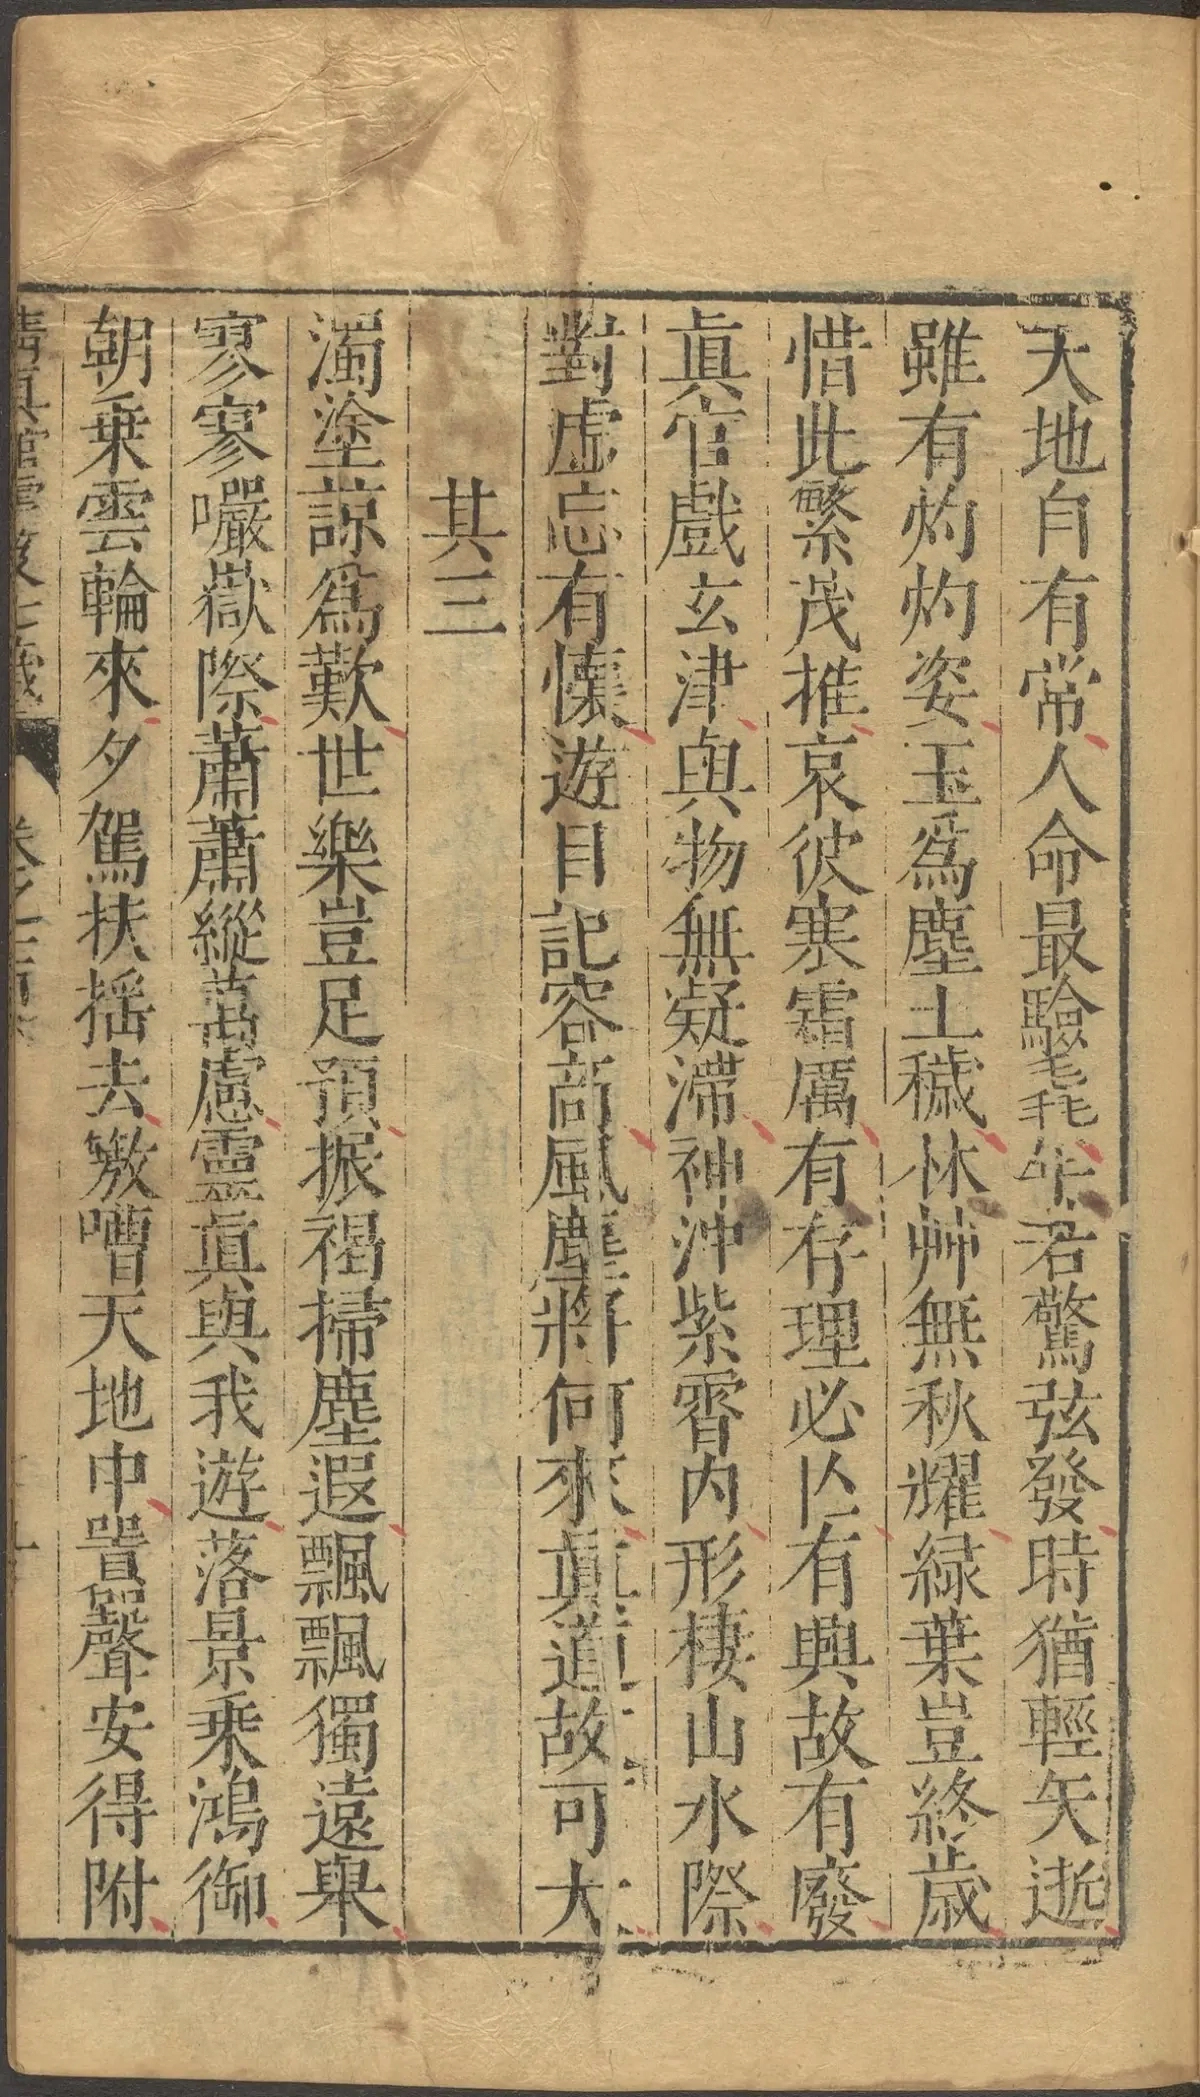 天地自有常人命最驗毳年若驚弦發時猶輕矢逝
雖有灼灼姿玉為塵土穢林艸無秋耀緑葉豈終歲
惜此繁茂摧哀彼寒霜厲有存理必亾有興故有廢
眞官戲玄津與物無凝滯神沖紫霄内形棲山水際
對虛忘有懷遊目記容商風塵將何來眞道故可大
其三
濁塗諒為歎世樂豈足預振褐掃塵遐飄飄獨遠舉
寥寥巖嶽際蕭蕭縱萬慮靈眞與我遊落景乗鴻御
朝乗雲輪來夕駕扶揺去嗷嘈天地中嚻聲安得附